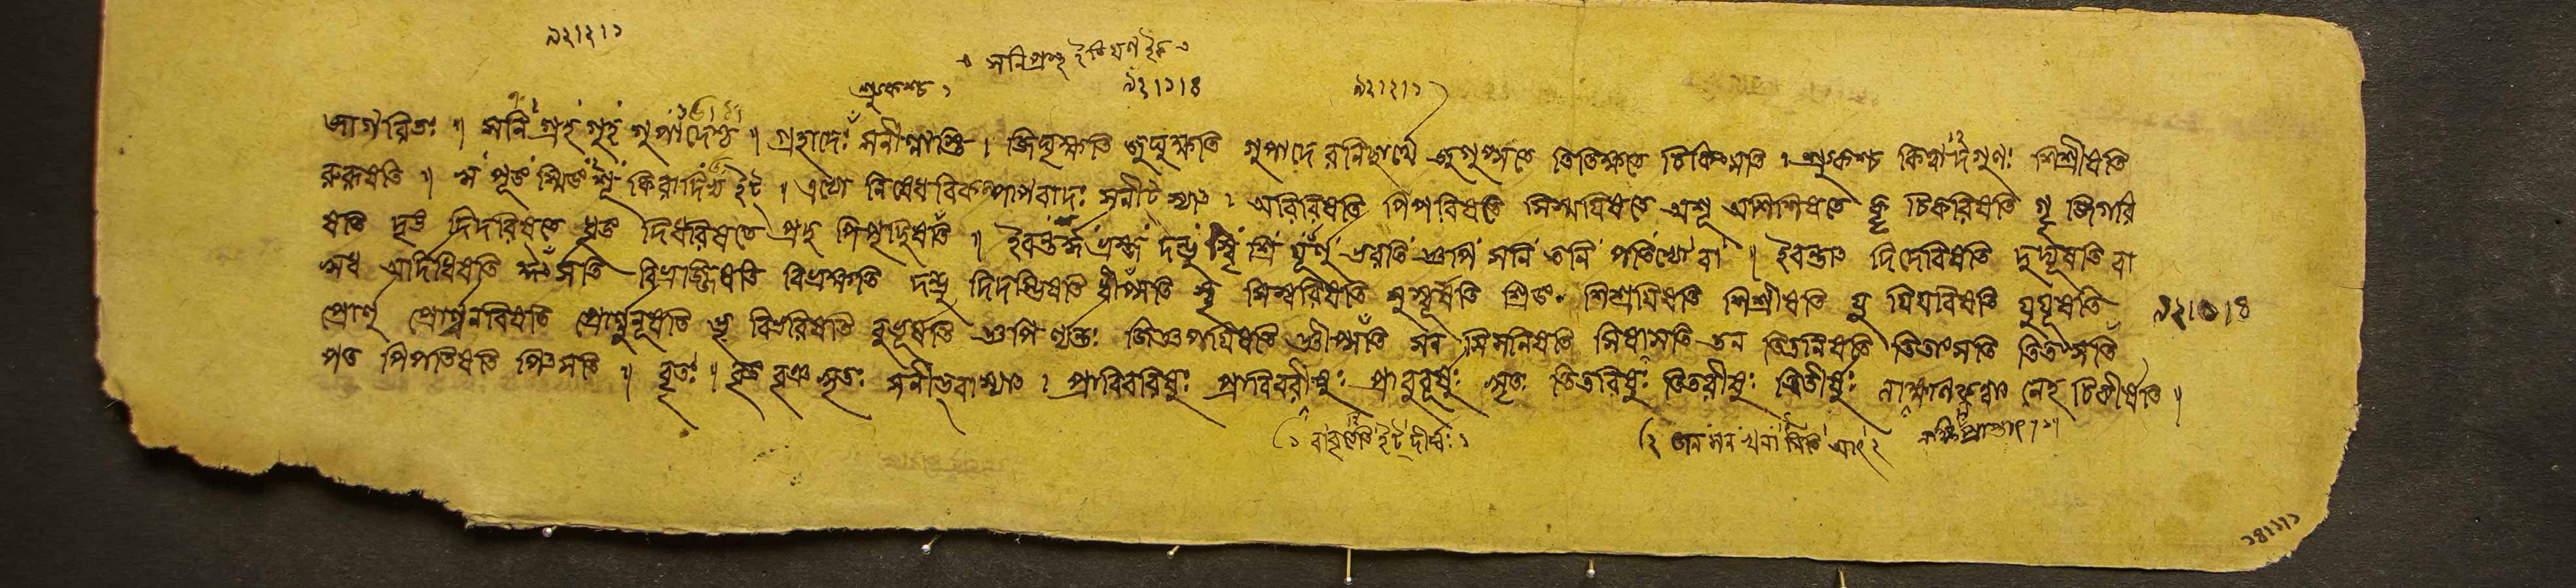 ৯২।২।১
৹ সনিগ্রন্থ ইতি
শ্রুকশ্চ ১ ৯২।১।৪ ৯২।২।১
জাগরিতঃ ॥ সনি গ্রহ গুহ গুপাদেশ্চ ॥ গ্রহাদেঃ সনীণ্নাস্তি । জিঘৃক্ষতি জুঘুক্ষতি গুপাদে রনিড়র্থে জুগুপ্সতে তিতিক্ষতে চিকিৎসতি । শ্রুকশ্চ কিত্ত্বাদগুণঃ শিশ্রীষতি
রুরূষতি ॥ স্ম পূঙ স্মিঙ কিরাদি ইট্ ॥ এষো নিষেধবিকল্পাপবাদঃ সনীট্ স্যাৎ । অরিরিষতি পিপবিষতে সিস্ময়িষতে অশূ অশিশিষতে কৄ চিকরিষতি গৄ জিগরি
ষতি দৃঙ দিদরিষতে ধৃঙ দিধরিষতে প্রছ পিপৃচ্ছিষতি ॥ ইবন্তর্দ্ধ ভ্রস্জ দন্ভু শ্রি যূর্ণু ভরতি জ্ঞপি সনি তনি পতি বা ॥ ইবন্তাৎ দিদেবিষতি দুদ্যূষতি বা
ঋধ অর্দিধিষতি ঈর্ৎসতি বিভ্রজ্জিষতি বিভ্রক্ষতি দন্ভু দিদম্ভিষতি ধীপ্সতি স্বৃ সিস্বরিষতি সুস্বূর্ষতি শ্রিঙ শিশ্রয়িষতি শিশ্রীষতি যু যিযবিষতি যুযূষতি
প্রোর্ণু প্রোর্ণুনবিষতি প্রোর্ণুনূষতি ভৃ বিভরিষতি বুভূর্ষতি জ্ঞপি ণ্যন্তঃ জিজ্ঞপয়িষতি জ্ঞীপ্সতি সন সিসনিষতি সিষাসতি তন তিতনিষতি তিতংসতি তিতাংসতি ৯২।৩।৪
পত পিপতিষতি পিৎসতি ॥ বৃতঃ ॥ বৃঙ বৃঞ ঋতঃ সনীড্বাস্যাৎ । প্রাবিবরিষুঃ প্রাবিবরীষুঃ প্রাবুবূর্ষুঃ ঋতঃ তিতরিষুঃ তিতরীষুঃ তিতীর্ষুঃ নেহ চিকীর্ষতি ॥
১ বাবৃতেতি ইট্ দীর্ঘঃ ১ (২ তন সন খনা মিতি আৎ ২
১৪।১।১